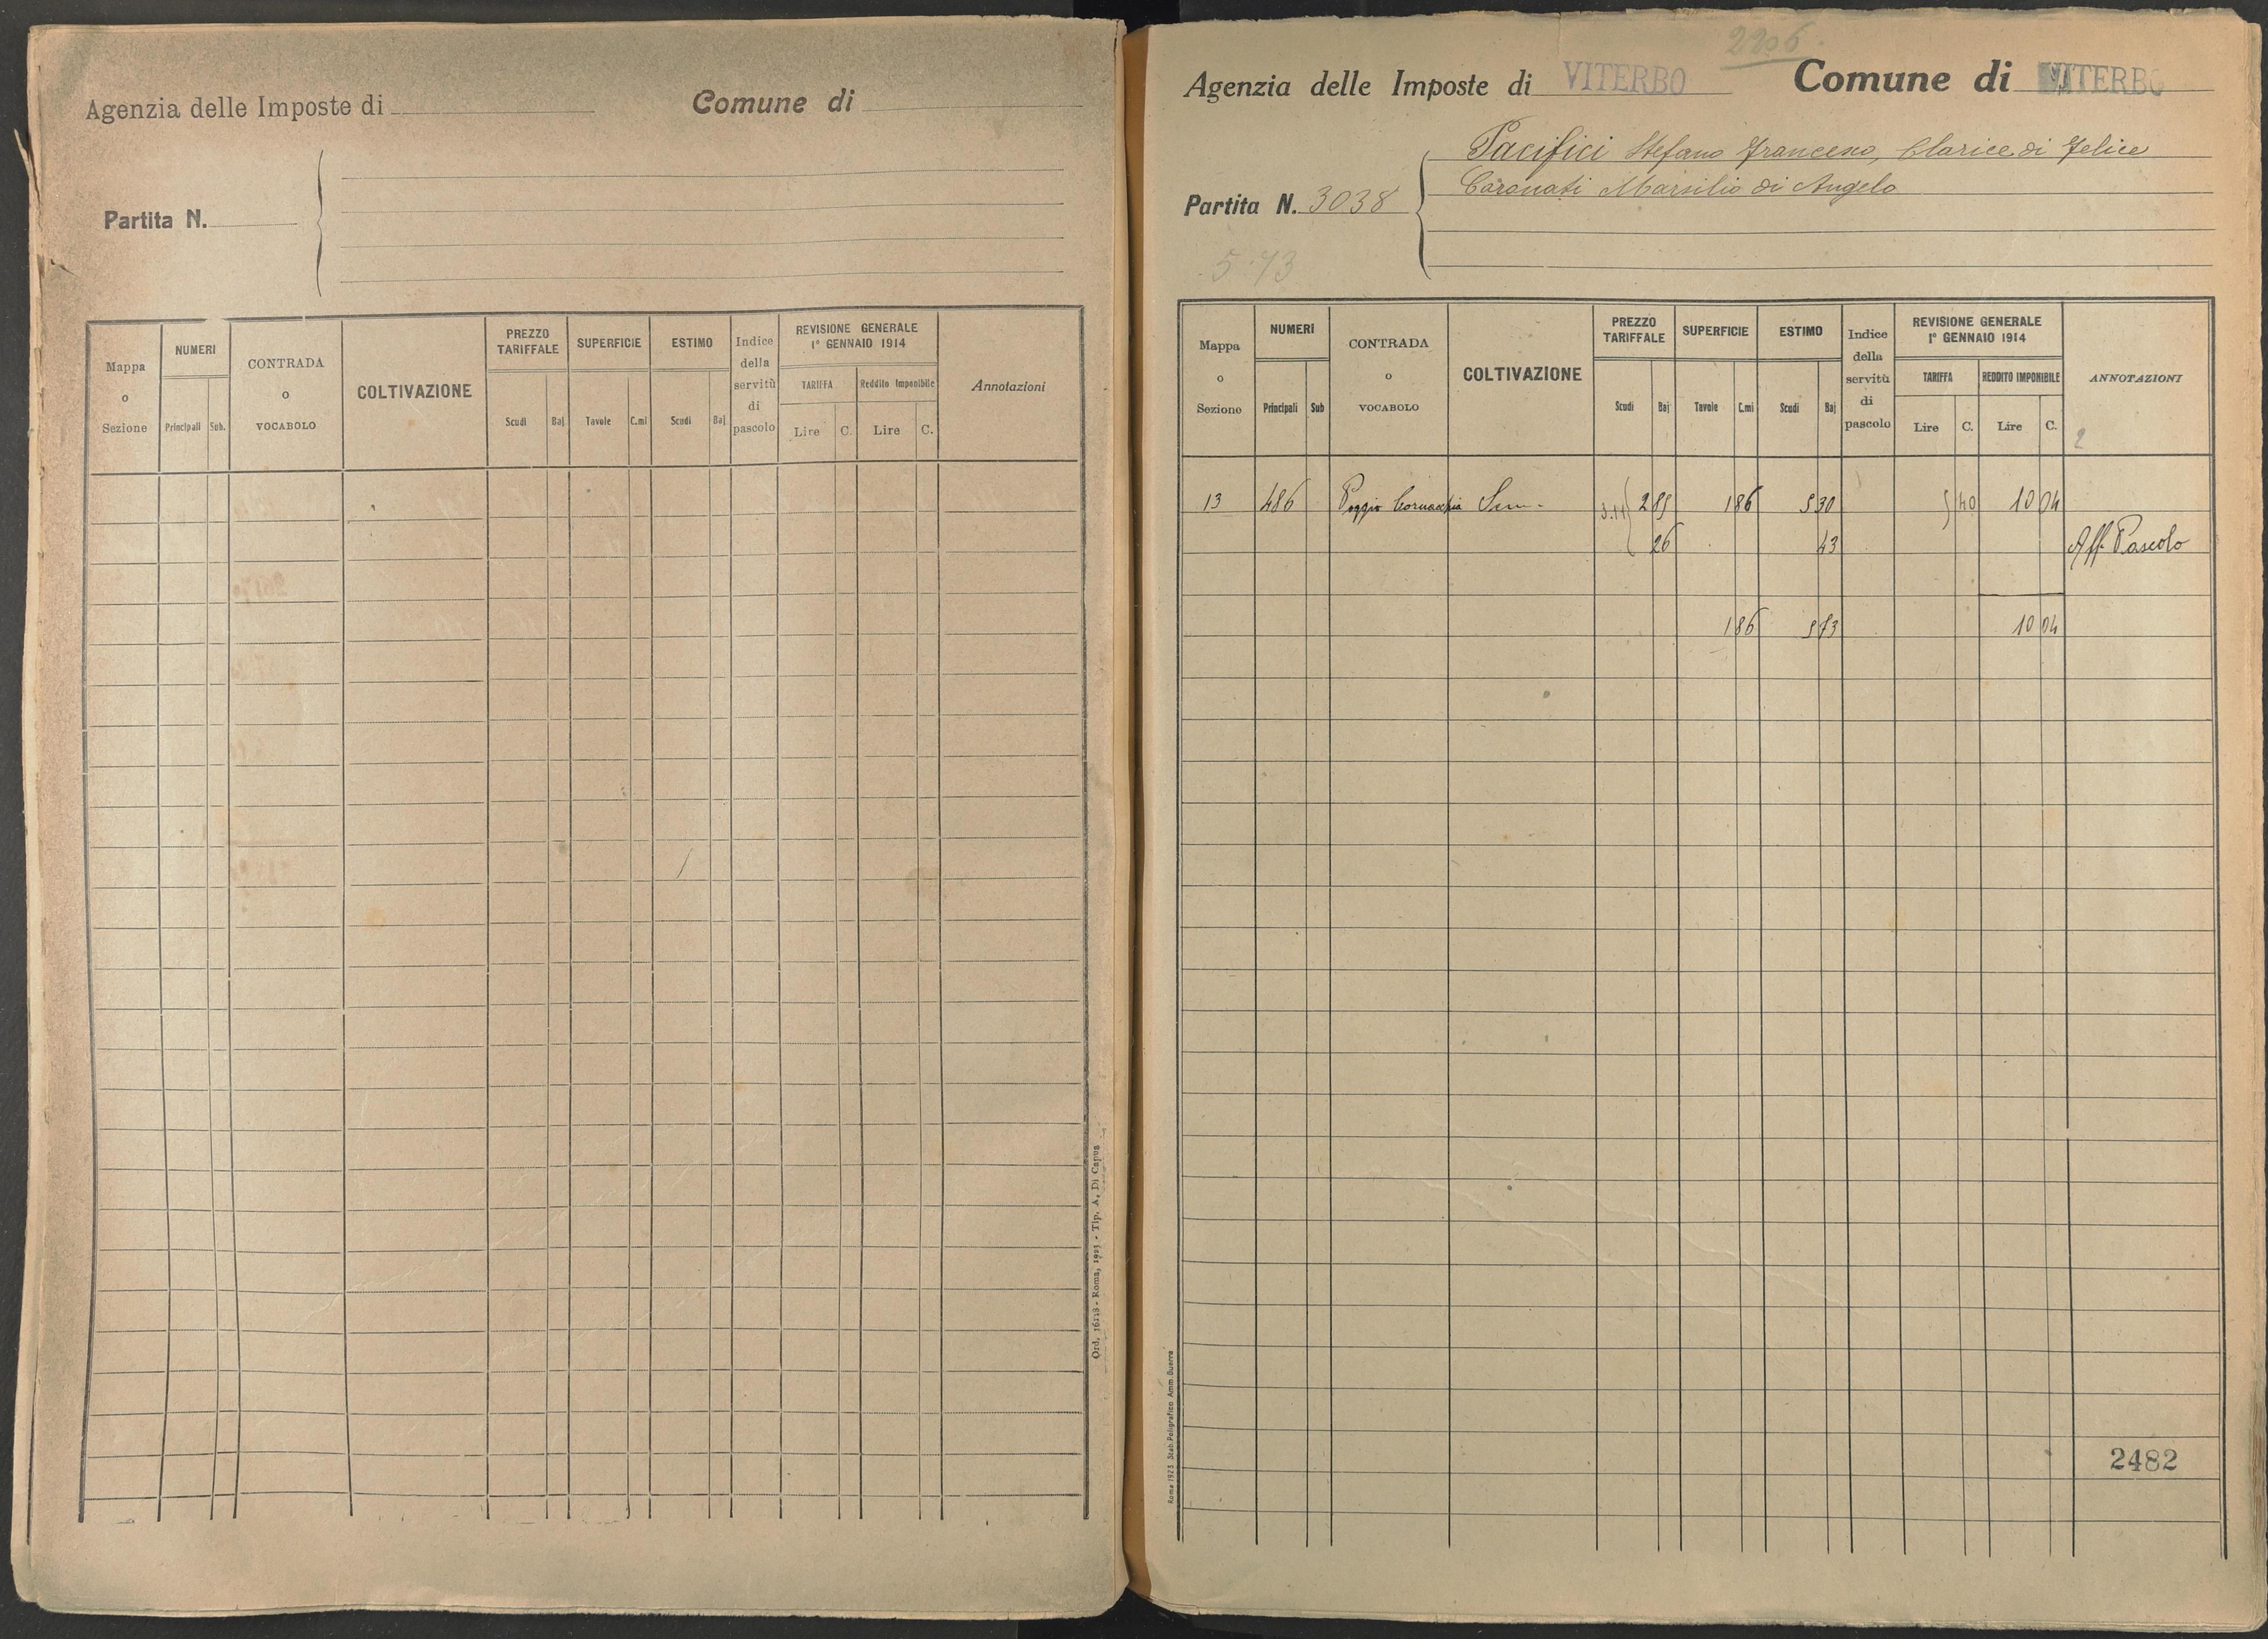 Agenzia delle Imposte di
Comune di
Partita N.
Mappa o Sezione
NUMERI
Principali
Sub.
CONTRADA o VOCABOLO
COLTIVAZIONE
PREZZO TARIFFALE
Scudi
Baj
SUPERFICIE
Tavole
C.mi
ESTIMO
Scudi
Baj
Indice della servitù di pascolo
REVISIONE GENERALE
1° GENNAIO 1914
TARIFFA
Lire
C.
Reddito Imponibile
Lire
C.
Annotazioni
Tip. A. Di Capua
2206
Agenzia delle Imposte di VITERBO
Comune di VITERBO
Pacifici Stefano Francesco, Clarice di Felice
Coronati Marsilio di Angelo
Partita N. 3038
5.73
Mappa o Sezione
NUMERI
Principali
Sub
CONTRADA o VOCABOLO
COLTIVAZIONE
PREZZO TARIFFALE
Scudi
Baj
SUPERFICIE
Tavole
C.mi
ESTIMO
Scudi
Baj
Indice della servitù di pascolo
REVISIONE GENERALE
1° GENNAIO 1914
TARIFFA
Lire
C.
REDDITO IMPONIBILE
Lire
C.
ANNOTAZIONI
2
13 486 Poggio Cornacchia Sem. 3.11 2 85 1 86 5 30 5 40 10 04
26 43 Aff. Pascolo
1 86 5 73 10 04
Roma 1923 Stab. Poligrafico Amm. Guerra
2482